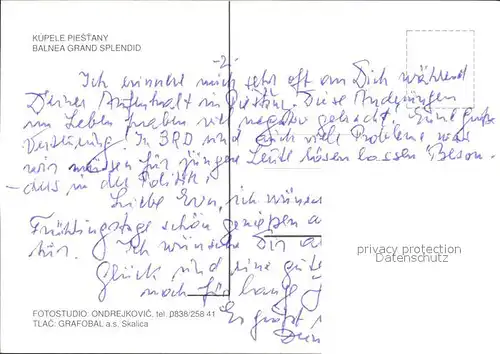 KÚPELE PIEŠŤANY
BALNEA GRAND SPLENDID
-2-
Ich erinnere mich sehr oft an Dich während
Deines Aufenthalt in Piešťany. Diese Änderungen
im Leben haben viel negativ gebracht. Eine große
Verteuerung! In BRD sind auch viel Probleme was
wir müssen für jüngere Leute lösen lassen. Beson-
ders in der Politik.
Liebe Eva, ich wünsche
Frühlingstage schön genießen a
tür. Ich wünsche Dir a
Glück und eine gute
noch für lange
Es grüßt
Dein
privacy protection
Datenschutz
FOTOSTUDIO ONDREJKOVIČ, tel. 0838/258 41
TLAČ: GRAFOBAL a.s. Skalica